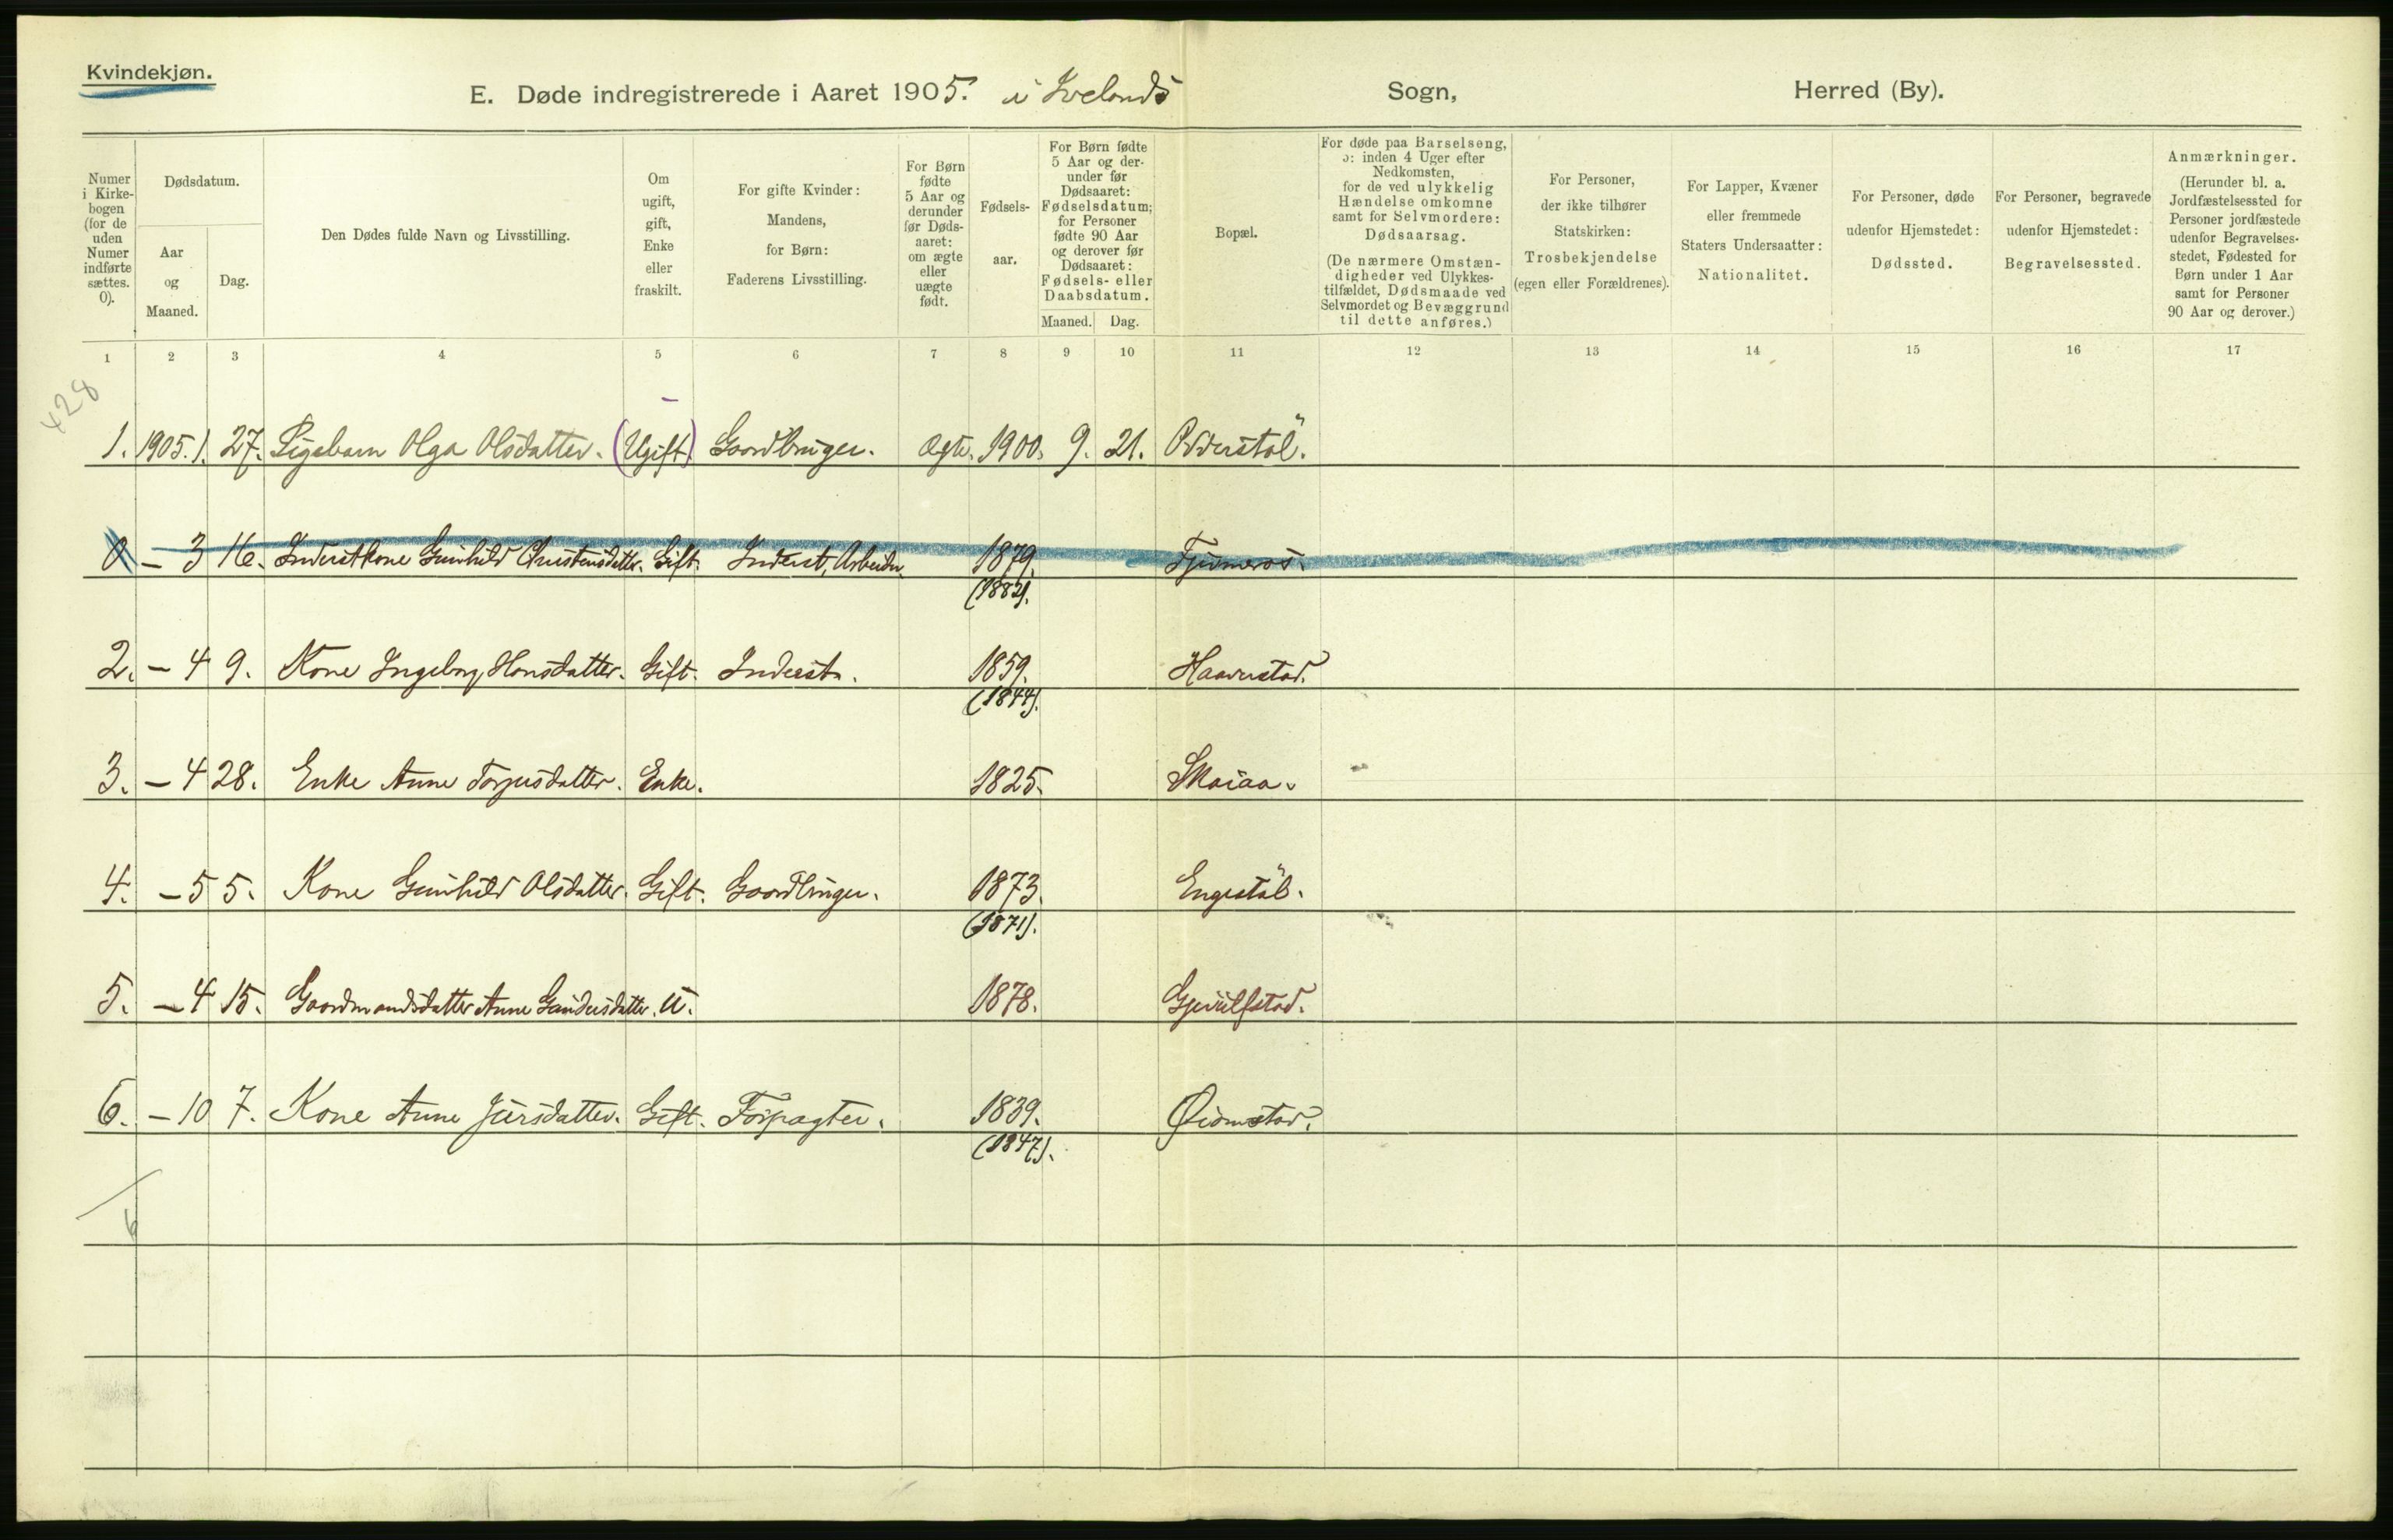 Kvindekjøn.
E. Døde indregistrerede i Aaret 1905. i Ivelands Sogn, Herred (By).
Numer i Kirke-bogen (for de uden Numer indførte sættes. 0).
Dødsdatum.
Aar og Maaned.
Dag.
Den Dødes fulde Navn og Livsstilling.
Om ugift, gift, Enke eller fraskilt.
For gifte Kvinder: Mandens, for Børn: Faderens Livsstilling.
For Børn fødte 5 Aar og derunder før Døds-aaret: om ægte eller uægte født.
Fødsels-aar.
For Børn fødte 5 Aar og der-under før Dødsaaret: Fødselsdatum; for Personer fødte 90 Aar og derover før Dødsaaret: Fødsels- eller Daabsdatum.
Maaned. Dag.
Bopæl.
For døde paa Barselseng, ɔ: inden 4 Uger efter Nedkomsten, for de ved ulykkelig Hændelse omkomne samt for Selvmordere: Dødsaarsag. (De nærmere Omstæn-digheder ved Ulykkes-tilfældet, Dødsmaade ved Selvmordet og Bevæggrund til dette anføres.)
For Personer, der ikke tilhører Statskirken: Trosbekjendelse (egen eller Forældrenes).
For Lapper, Kvæner eller fremmede Staters Undersaatter: Nationalitet.
For Personer, døde udenfor Hjemstedet: Dødssted.
For Personer, begravede udenfor Hjemstedet: Begravelsessted.
Anmærkninger. (Herunder bl. a. Jordfæstelsessted for Personer jordfæstede udenfor Begravelses-stedet, Fødested for Børn under 1 Aar samt for Personer 90 Aar og derover.)
1 2 3 4 5 6 7 8 9 10 11 12 13 14 15 16 17
428
1. 1905. 1. 27. Pigebarn Olga Olsdatter. (Ugift) Gaardbruger. Ægte. 1900. 9. 21. Odderstöl.
0 – 3 16. Inderstkone Gunhild Christensdatter. Gift. Inderst, Arbeider. 1879.
(1882).
2. – 4 9. Kone Ingeborg Hansdatter. Gift. Inderst. 1859. Haaverstad.
(1844).
3. – 4 28. Enke Anne Torjusdatter. Enke. 1825. Skaiaa.
4. – 5 5. Kone Gunhild Olsdatter. Gift. Gaardbruger. 1873. Engestöl.
(1871).
5. – 4 15. Gaardmandsdatter Anne Gundersdatter. U. 1878. Gjeiulfstad.
6. – 10 7. Kone Anne Jursdatter. Gift. Forpagter. 1839. Øiomstad.
(1847).
6